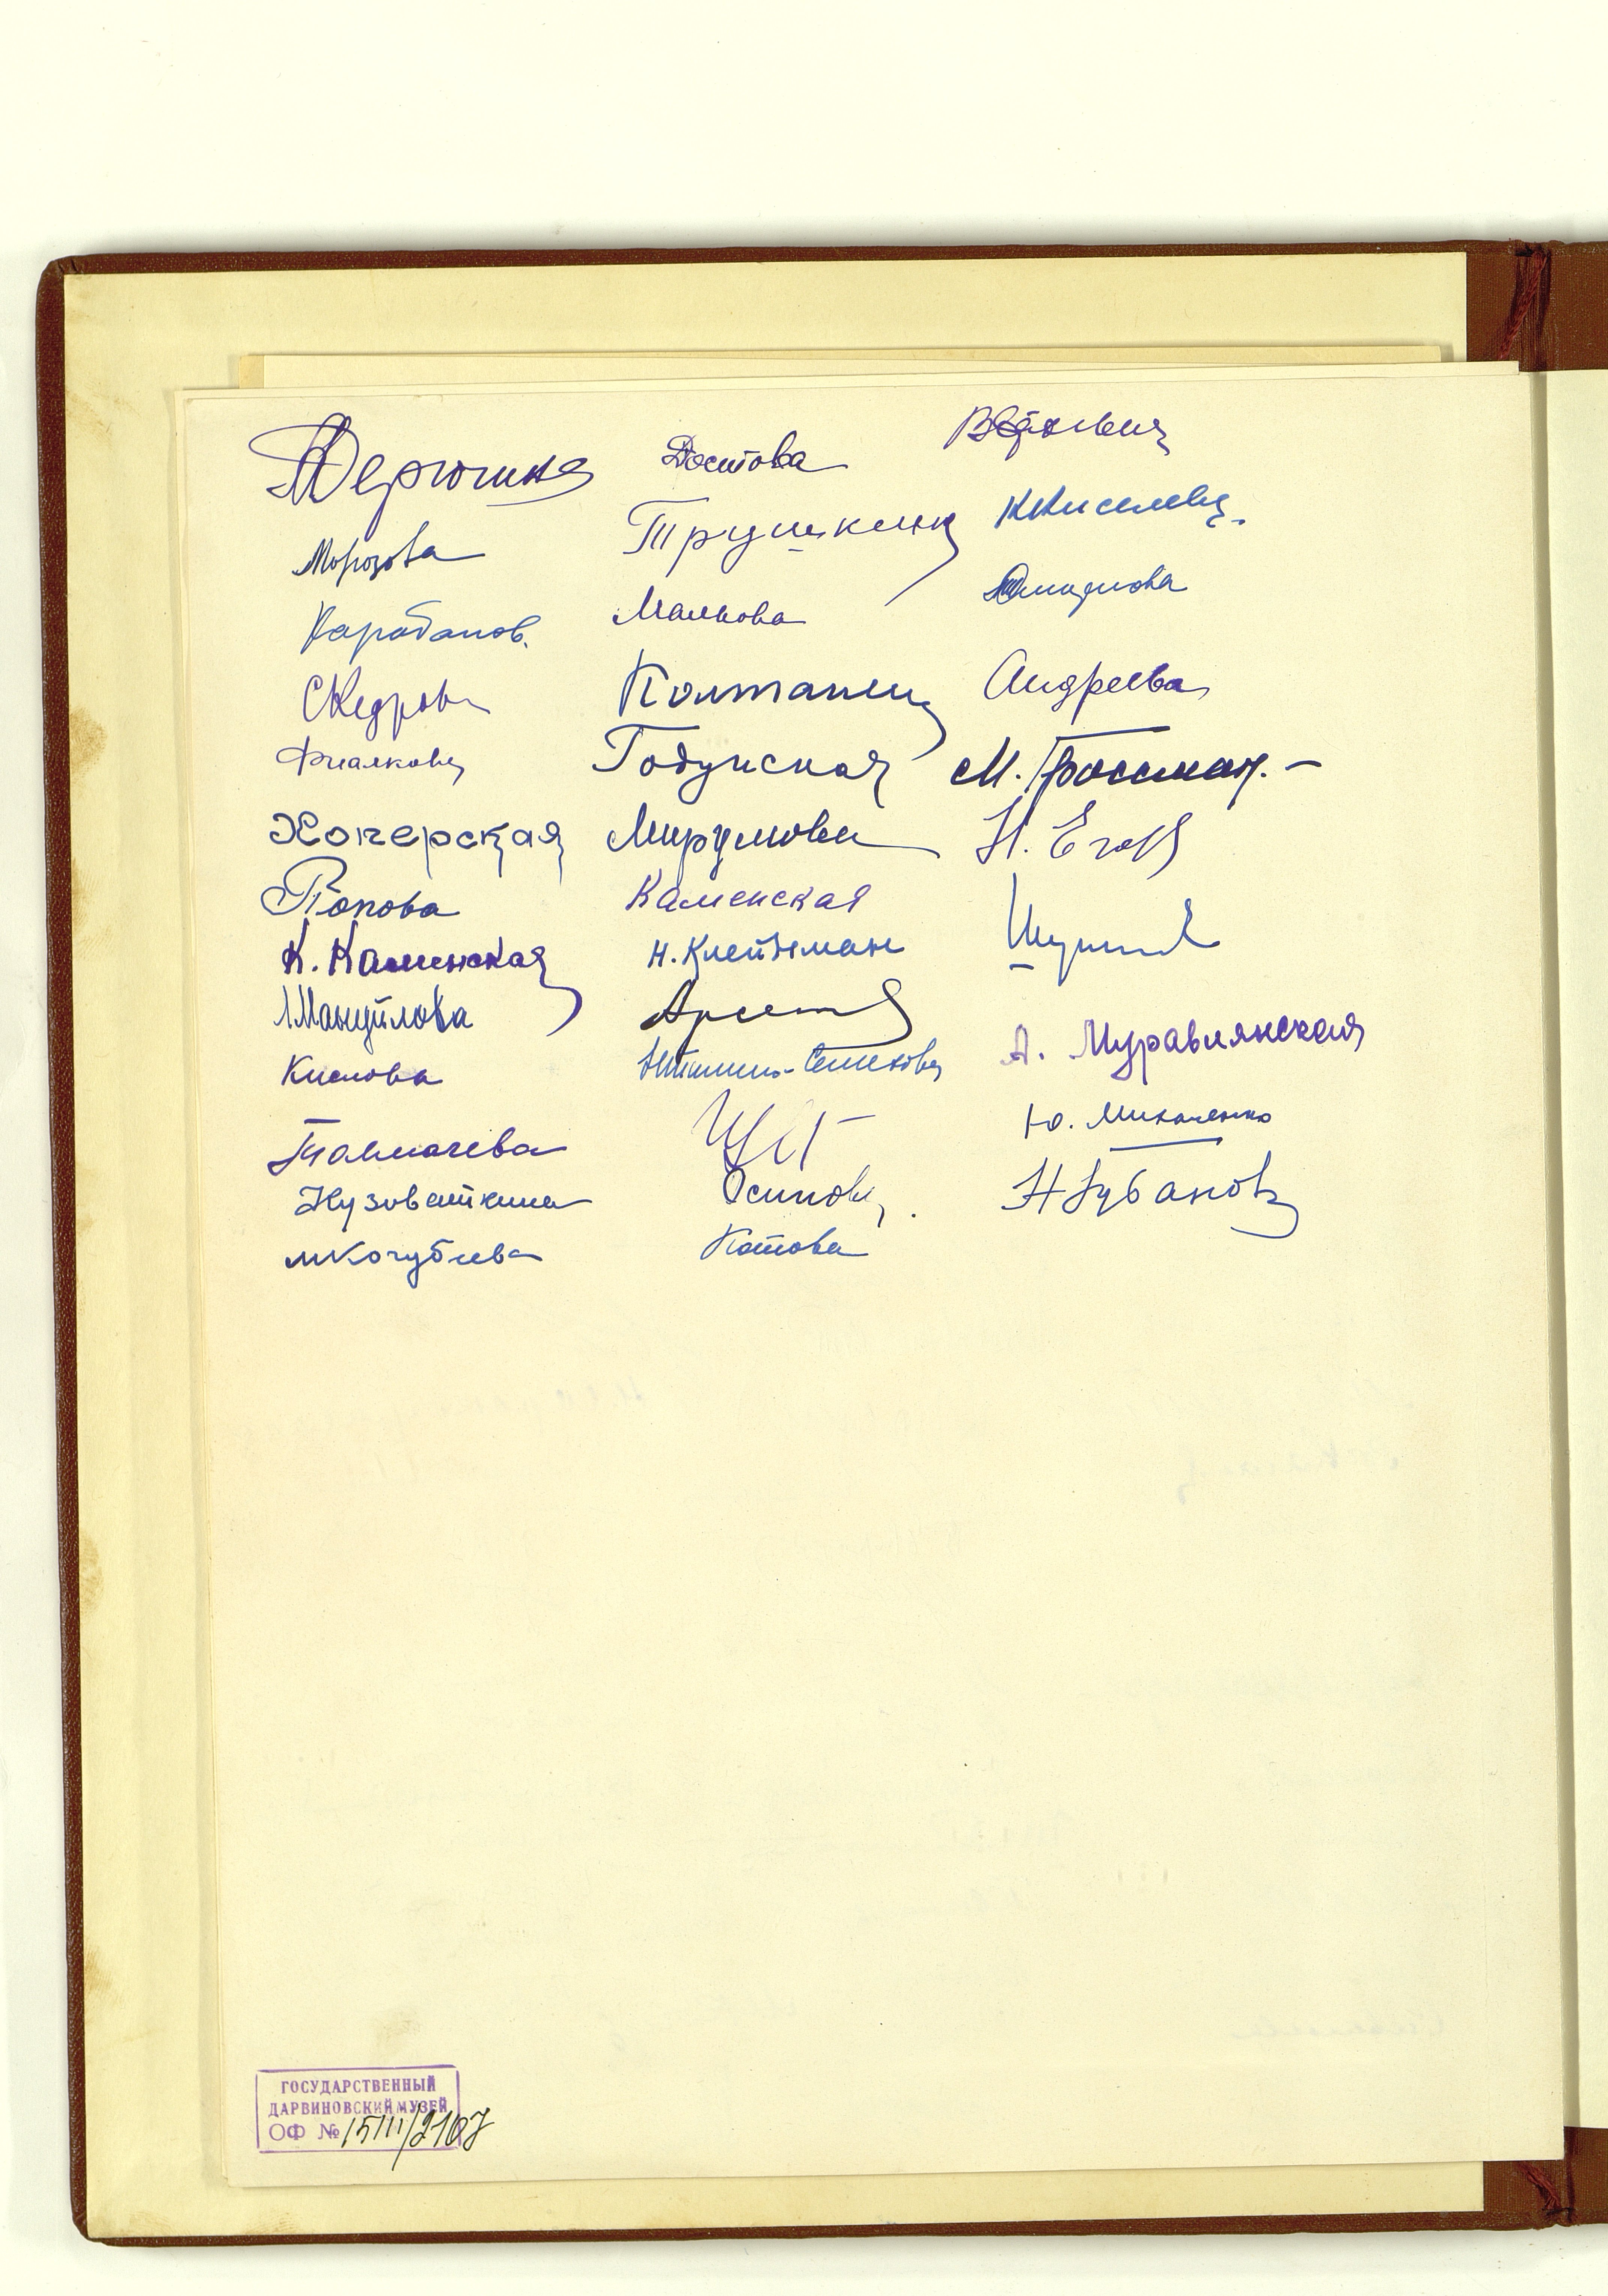 Дерюгина
Морозова
Карабанов.
СКедрова
Фиалкова
Хоперская
Попова
К. Каминская
Мануйлова
Кислова
Толмачева
Кузоваткина
МКочубеева
Достова
Трушкина
Малкова
Колтанец
Годунская
Мирумова
Каменская
Н. Клейнман
Семенова
Осипова.
Котова
ККиселева.
Андреева
М. Гроссман. –
Н. Егор
А. Муравлянская
Ю. Михаленко
НГубанова
ГОСУДАРСТВЕННЫЙ
ДАРВИНОВСКИЙ МУЗЕЙ
ОФ № 15111/2107